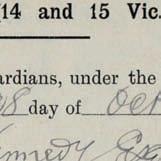 14 and 15 Vic.
ardians, under the
day of Oc
nnedy